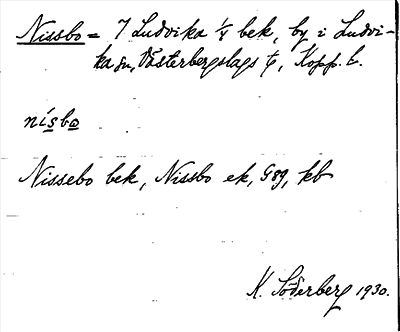 Nissbo = 7 Ludvika 1/4 bek, by i Ludvi-
ka sn, Västerbergslags tg, Kopp. l.
nísbo
Nissebo bek, Nissbo ek, G89, kb
K. Söderberg 1930.